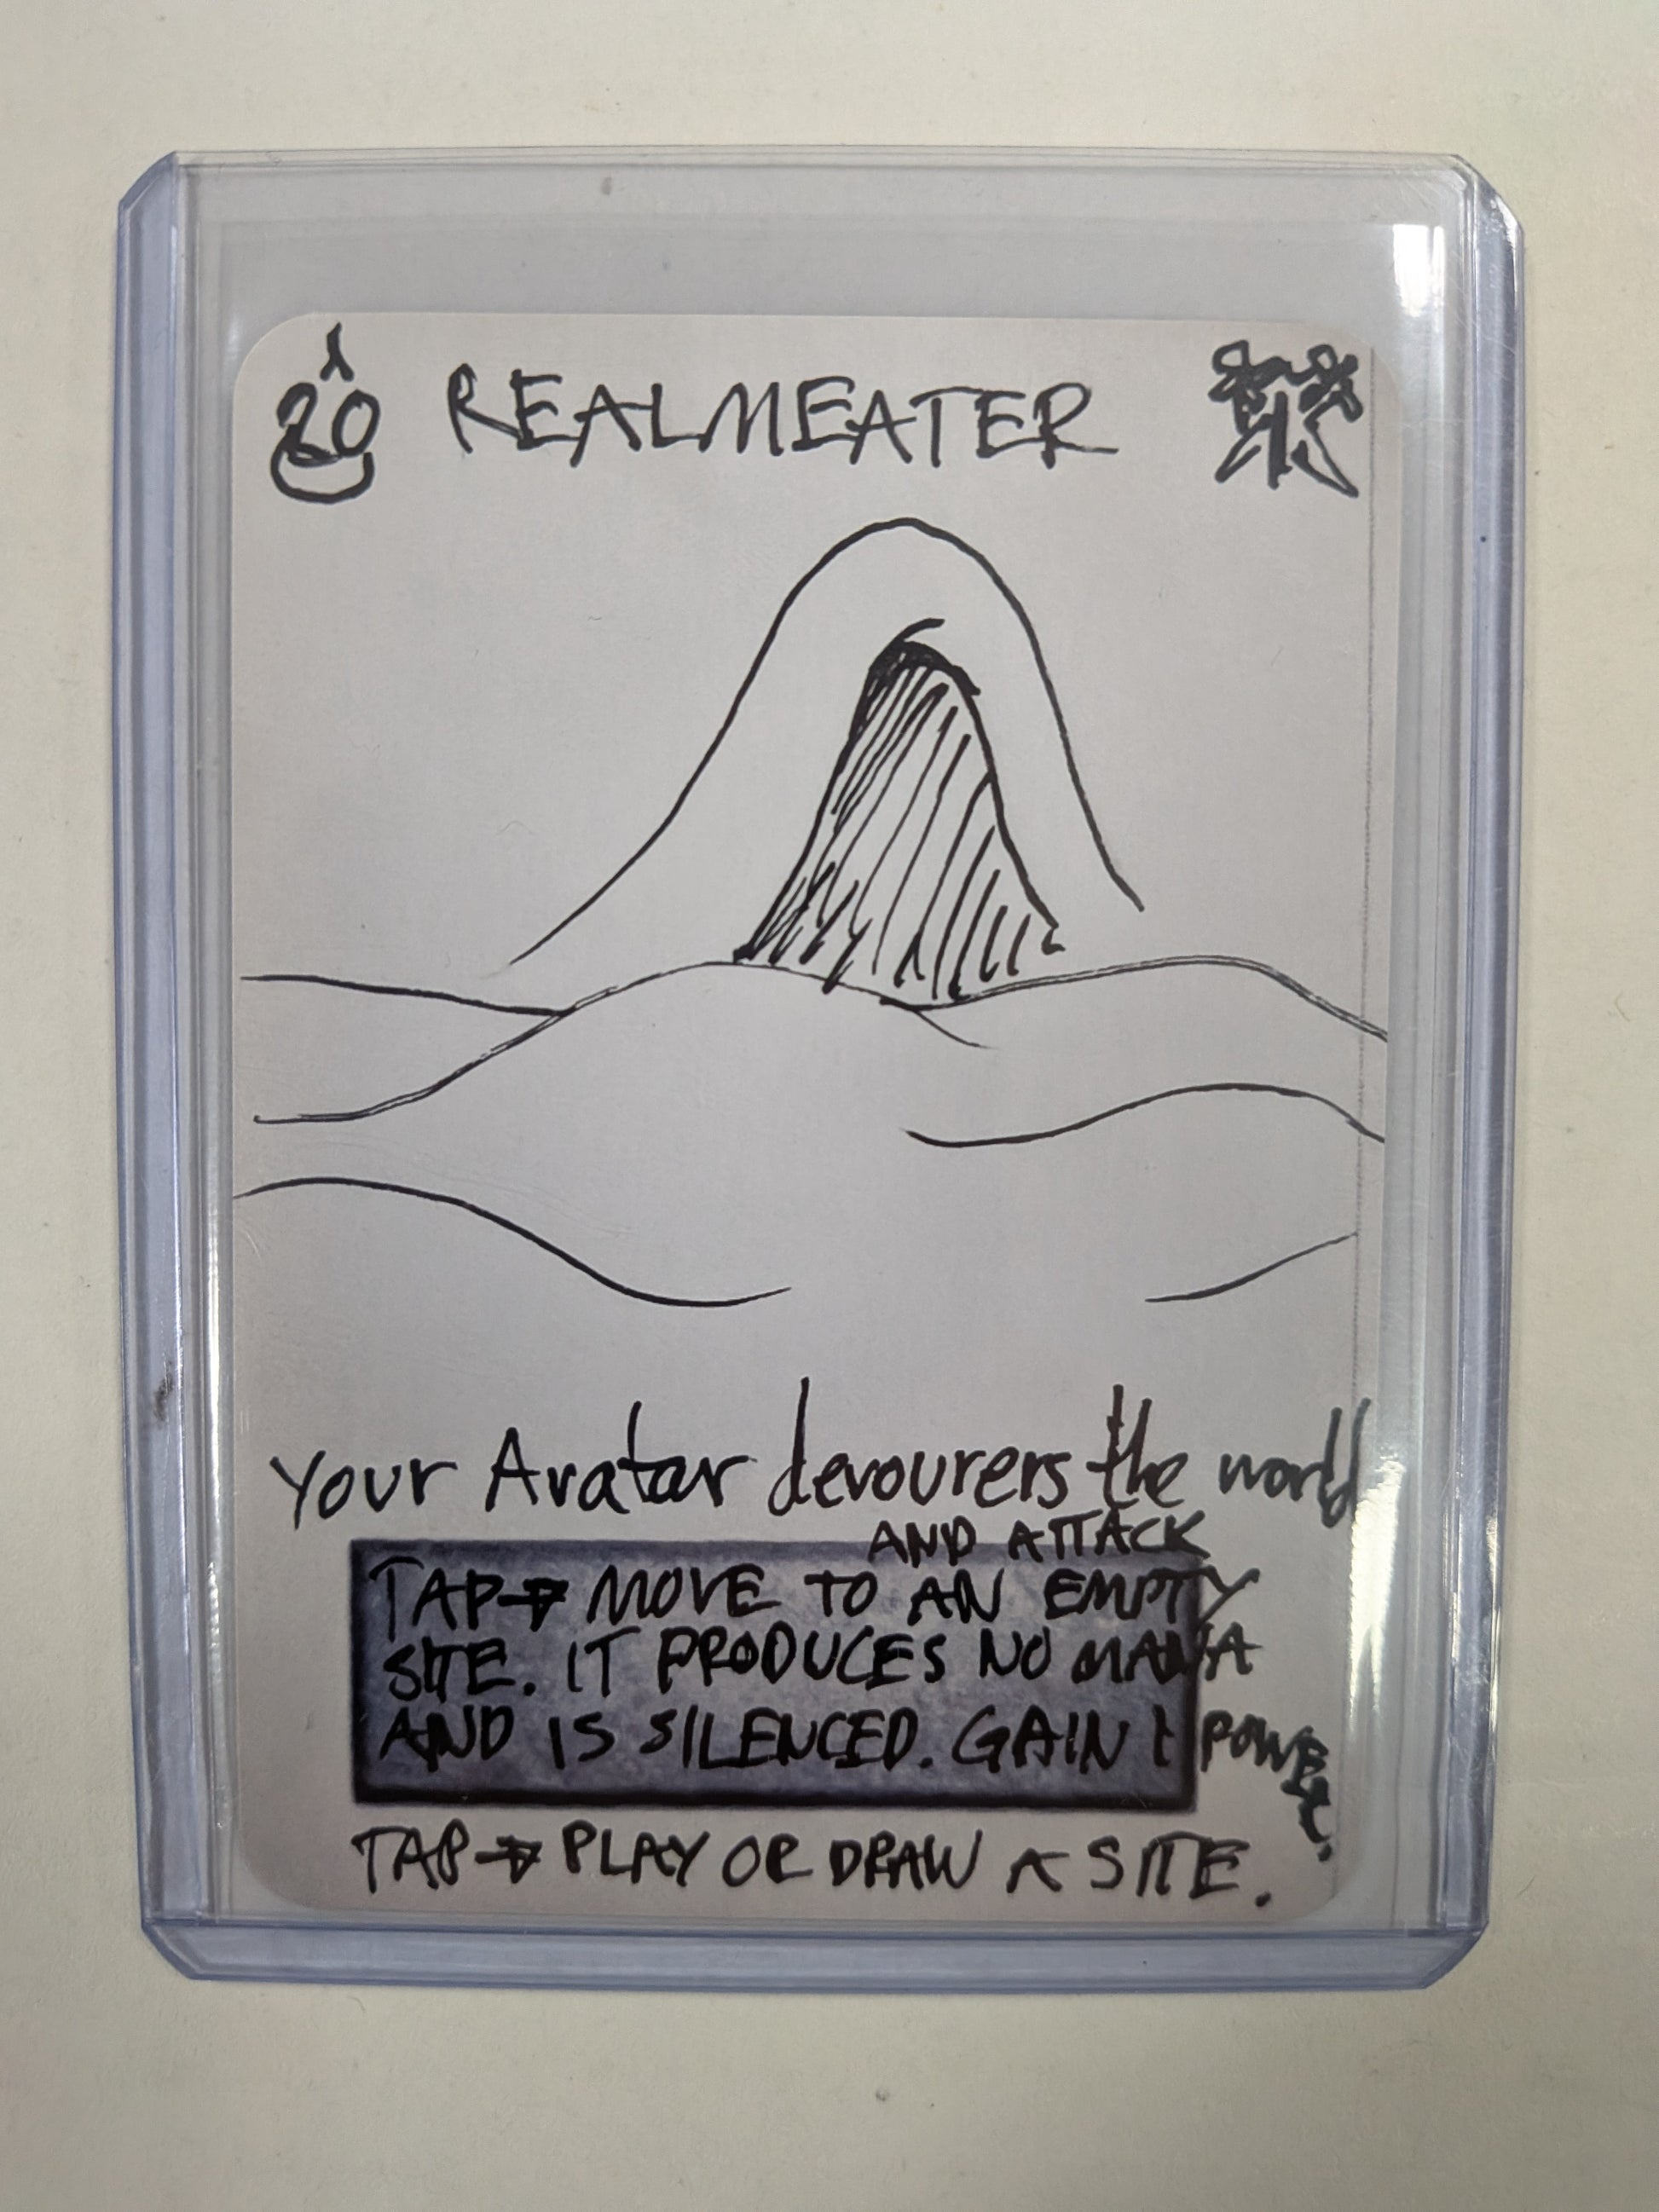 20 REALMEATER
Your Avatar devourers the world
AND ATTACK
TAP→ MOVE TO AN EMPTY
SITE. IT PRODUCES NO MANA
AND IS SILENCED. GAIN 1 POWER.
TAP→ PLAY OR DRAW A SITE.